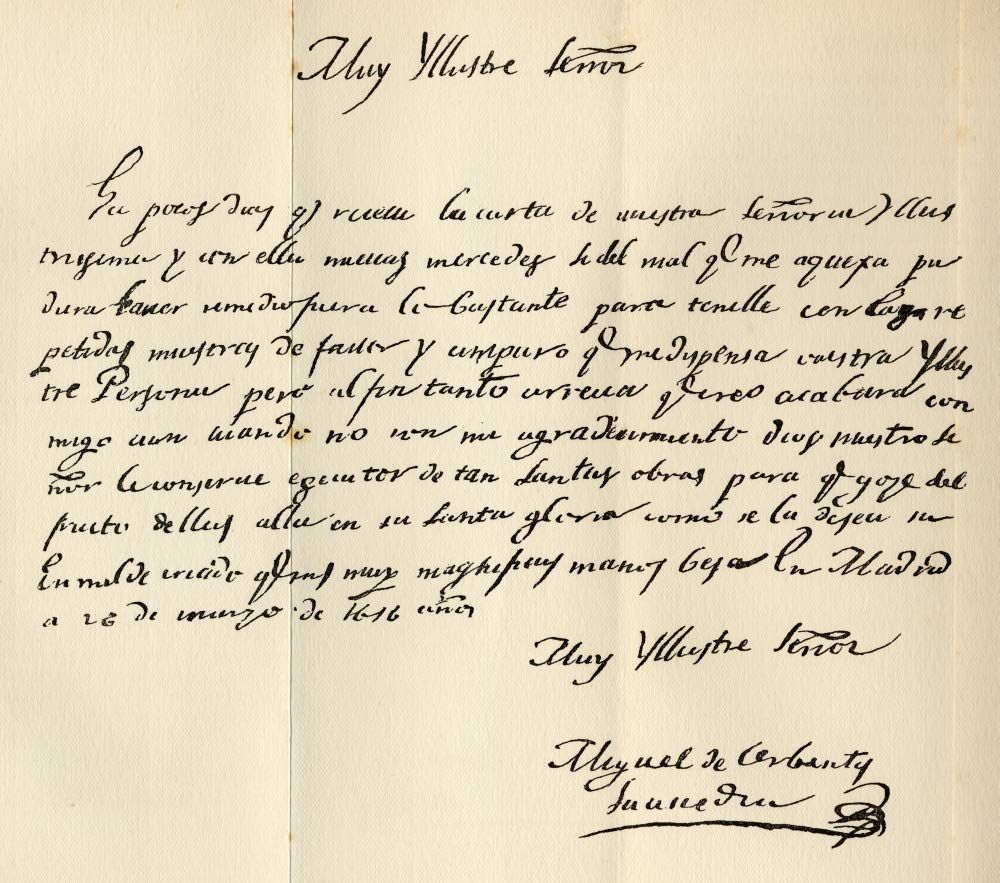 Muy Yllustre señor
Ha pocos dias q̃ receui la carta de vuestra señoria Yllus
trisima y con ella nueuas mercedes si del mal q̃ me aquexa pu
diera hauer remedio fuera lo bastante para tenelle con las re
petidas muestras de fauor y amparo q̃ me dispensa vuestra Yllus
tre Persona pero al fin tanto arrecia q̃ creo acabara con
migo aun cuando no con mi agradecimiento dios nuestro se
ñor le conserue egecutor de tan santas obras para q̃ goze del
fruto dellas alla en su santa gloria como se la desea su
humilde criado q̃ sus muy magnificas manos besa En Madrid
a 26 de marzo de 1616 años
Muy Yllustre señor
Miguel de Cerbantes
saauedra